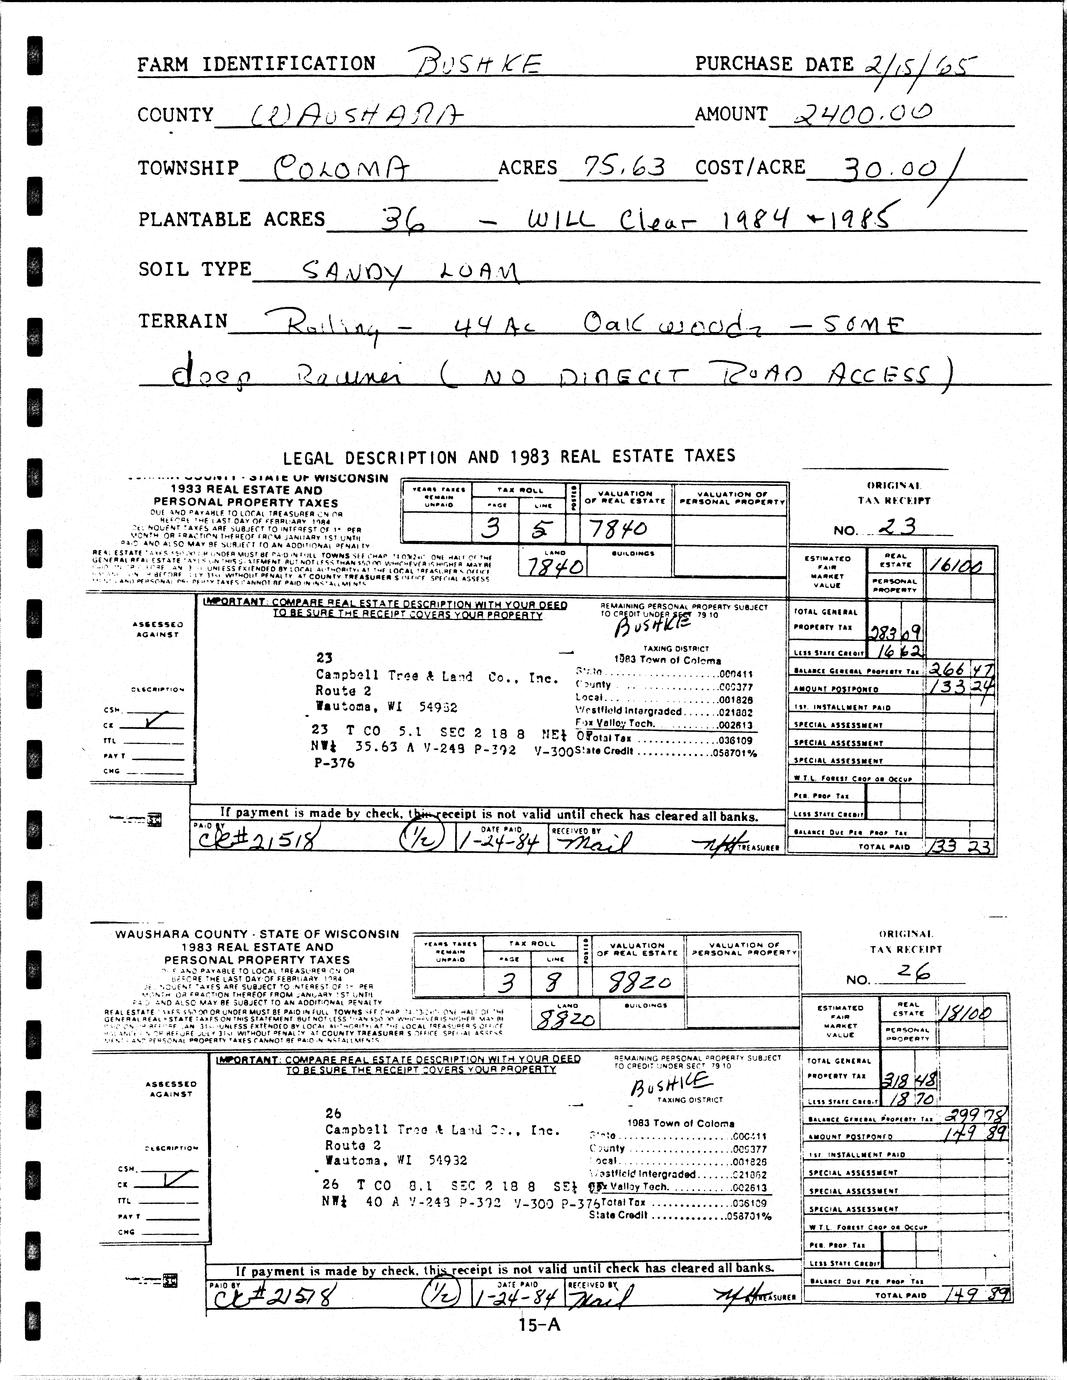 FARM IDENTIFICATION BUSHKE PURCHASE DATE 2/15/65
COUNTY WAUSHARA AMOUNT 2400.00
TOWNSHIP COLOMA ACRES 75.63 COST/ACRE 30.00/
PLANTABLE ACRES 36 - WILL Clear 1984 + 1985
SOIL TYPE SANDY LOAM
TERRAIN Rolling - 44 Ac Oak woods - SOME
deep Ravines ( NO DIRECT ROAD ACCESS )
LEGAL DESCRIPTION AND 1983 REAL ESTATE TAXES
COUNTY - STATE OF WISCONSIN
1983 REAL ESTATE AND
PERSONAL PROPERTY TAXES
DUE AND PAYABLE TO LOCAL TREASURER ON OR
BEFORE THE LAST DAY OF FEBRUARY 1984
TAXES ARE SUBJECT TO INTEREST OF 1% PER
MONTH OR FRACTION THEREOF FROM JANUARY 1ST UNTIL
PAID AND ALSO MAY BE SUBJECT TO AN ADDITIONAL PENALTY
YEARS TAXES REMAIN UNPAID
TAX ROLL
PAGE LINE
POSTED
VALUATION OF REAL ESTATE
VALUATION OF PERSONAL PROPERTY
3 5 7840
LAND BUILDINGS
7840
ORIGINAL
TAX RECEIPT
NO. 23
ESTIMATED FAIR MARKET VALUE
REAL ESTATE 16100
PERSONAL PROPERTY
IMPORTANT: COMPARE REAL ESTATE DESCRIPTION WITH YOUR DEED
TO BE SURE THE RECEIPT COVERS YOUR PROPERTY
REMAINING PERSONAL PROPERTY SUBJECT
TO CREDIT UNDER SECT 79 10
BUSHKE
TAXING DISTRICT
1983 Town of Coloma
ASSESSED
AGAINST
23
Campbell Tree & Land Co., Inc.
Route 2
Wautoma, WI 54982
23 T CO 5.1 SEC 2 18 8 NE¼ OF
NW¼ 35.63 A V-248 P-392 V-300
P-376
State .000411
County .005377
Local .001826
Westfield Intergraded .021882
Fox Valley Tech. .002613
Total Tax .036109
State Credit .058701%
DESCRIPTION
CSH.
CK
TTL
PAY'T
CHG
TOTAL GENERAL
PROPERTY TAX 283 09
LESS STATE CREDIT 16 62
BALANCE GENERAL PROPERTY TAX 266 47
AMOUNT POSTPONED 133 24
1ST. INSTALLMENT PAID
SPECIAL ASSESSMENT
SPECIAL ASSESSMENT
SPECIAL ASSESSMENT
W.T.L. FOREST CROP OR OCCUP
PER. PROP TAX
LESS STATE CREDIT
BALANCE DUE PER. PROP TAX
TOTAL PAID 133 23
If payment is made by check, this receipt is not valid until check has cleared all banks.
PAID BY CK# 21518 (1/2) DATE PAID 1-24-84 RECEIVED BY Mail TREASURER
WAUSHARA COUNTY - STATE OF WISCONSIN
1983 REAL ESTATE AND
PERSONAL PROPERTY TAXES
DUE AND PAYABLE TO LOCAL TREASURER ON OR
BEFORE THE LAST DAY OF FEBRUARY 1984
TAXES ARE SUBJECT TO INTEREST OF 1% PER
MONTH OR FRACTION THEREOF FROM JANUARY 1ST UNTIL
PAID AND ALSO MAY BE SUBJECT TO AN ADDITIONAL PENALTY
YEARS TAXES REMAIN UNPAID
TAX ROLL
PAGE LINE
POSTED
VALUATION OF REAL ESTATE
VALUATION OF PERSONAL PROPERTY
3 8 8820
LAND BUILDINGS
8820
ORIGINAL
TAX RECEIPT
NO. 26
ESTIMATED FAIR MARKET VALUE
REAL ESTATE 18100
PERSONAL PROPERTY
IMPORTANT: COMPARE REAL ESTATE DESCRIPTION WITH YOUR DEED
TO BE SURE THE RECEIPT COVERS YOUR PROPERTY
REMAINING PERSONAL PROPERTY SUBJECT
TO CREDIT UNDER SECT 79 10
BUSHKE
TAXING DISTRICT
1983 Town of Coloma
ASSESSED
AGAINST
26
Campbell Tree & Land Co., Inc.
Route 2
Wautoma, WI 54982
26 T CO 8.1 SEC 2 18 8 SE¼ OF
NW¼ 40 A V-248 P-392 V-300 P-376
State .000411
County .005377
Local .001826
Westfield Intergraded .021882
Fox Valley Tech. .002613
Total Tax .036109
State Credit .058701%
DESCRIPTION
CSH.
CK
TTL
PAY'T
CHG
TOTAL GENERAL
PROPERTY TAX 318 48
LESS STATE CREDIT 18 70
BALANCE GENERAL PROPERTY TAX 299 78
AMOUNT POSTPONED 149 89
1ST INSTALLMENT PAID
SPECIAL ASSESSMENT
SPECIAL ASSESSMENT
SPECIAL ASSESSMENT
W.T.L. FOREST CROP OR OCCUP
PER. PROP TAX
LESS STATE CREDIT
BALANCE DUE PER. PROP TAX
TOTAL PAID 149 89
If payment is made by check, this receipt is not valid until check has cleared all banks.
PAID BY CK# 21518 (1/2) DATE PAID 1-24-84 RECEIVED BY Mail TREASURER
15-A